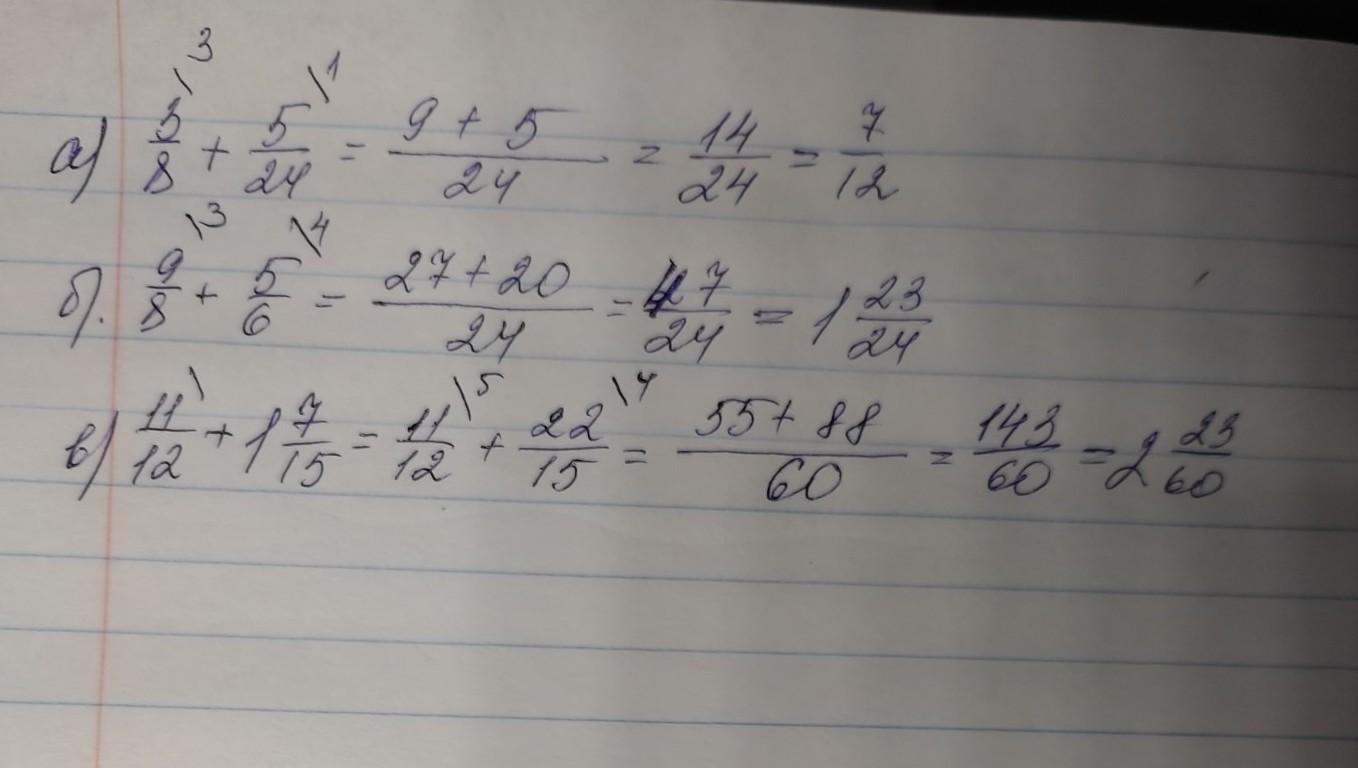 а) 3/8 \3 + 5/24 \1 = (9 + 5)/24 = 14/24 = 7/12
б). 9/8 \3 + 5/6 \4 = (27 + 20)/24 = 47/24 = 1 23/24
в) 11/12 \ + 1 7/15 = 11/12 \5 + 22/15 \4 = (55 + 88)/60 = 143/60 = 2 23/60